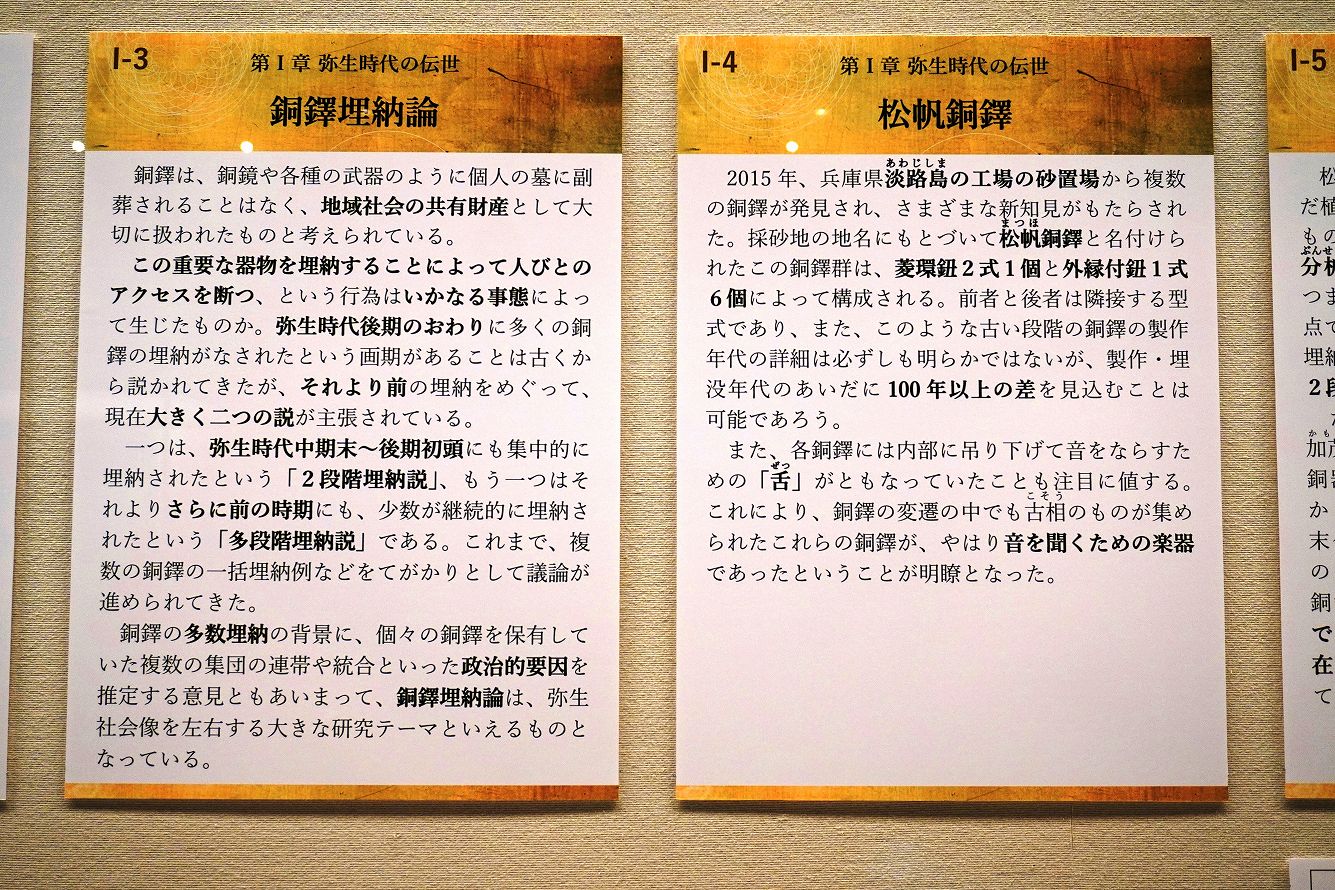 I-3
第Ⅰ章 弥生時代の伝世
銅鐸埋納論
銅鐸は、銅鏡や各種の武器のように個人の墓に副
葬されることはなく、地域社会の共有財産として大
切に扱われたものと考えられている。
この重要な器物を埋納することによって人びとの
アクセスを断つ、という行為はいかなる事態によっ
て生じたものか。弥生時代後期のおわりに多くの銅
鐸の埋納がなされたという画期があることは古くか
ら説かれてきたが、それより前の埋納をめぐって、
現在大きく二つの説が主張されている。
一つは、弥生時代中期末～後期初頭にも集中的に
埋納されたという「２段階埋納説」、もう一つはそ
れよりさらに前の時期にも、少数が継続的に埋納さ
れたという「多段階埋納説」である。これまで、複
数の銅鐸の一括埋納例などをてがかりとして議論が
進められてきた。
銅鐸の多数埋納の背景に、個々の銅鐸を保有して
いた複数の集団の連帯や統合といった政治的要因を
推定する意見ともあいまって、銅鐸埋納論は、弥生
社会像を左右する大きな研究テーマといえるものと
なっている。
I-4
第Ⅰ章 弥生時代の伝世
松帆銅鐸
あわじしま
2015年、兵庫県淡路島の工場の砂置場から複数
の銅鐸が発見され、さまざまな新知見がもたらされ
まつほ
た。採砂地の地名にもとづいて松帆銅鐸と名付けら
れたこの銅鐸群は、菱環鈕２式１個と外縁付鈕１式
６個によって構成される。前者と後者は隣接する型
式であり、また、このような古い段階の銅鐸の製作
年代の詳細は必ずしも明らかではないが、製作・埋
没年代のあいだに100年以上の差を見込むことは
可能であろう。
また、各銅鐸には内部に吊り下げて音をならすた
ぜつ
めの「舌」がともなっていたことも注目に値する。
こそう
これにより、銅鐸の変遷の中でも古相のものが集め
られたこれらの銅鐸が、やはり音を聞くための楽器
であったということが明瞭となった。
I-5
松
だ植
もの
ぶんせ
分析
つま
点で
埋納
２段
かも
加茂
銅器
か
末
の
銅
で
在
て